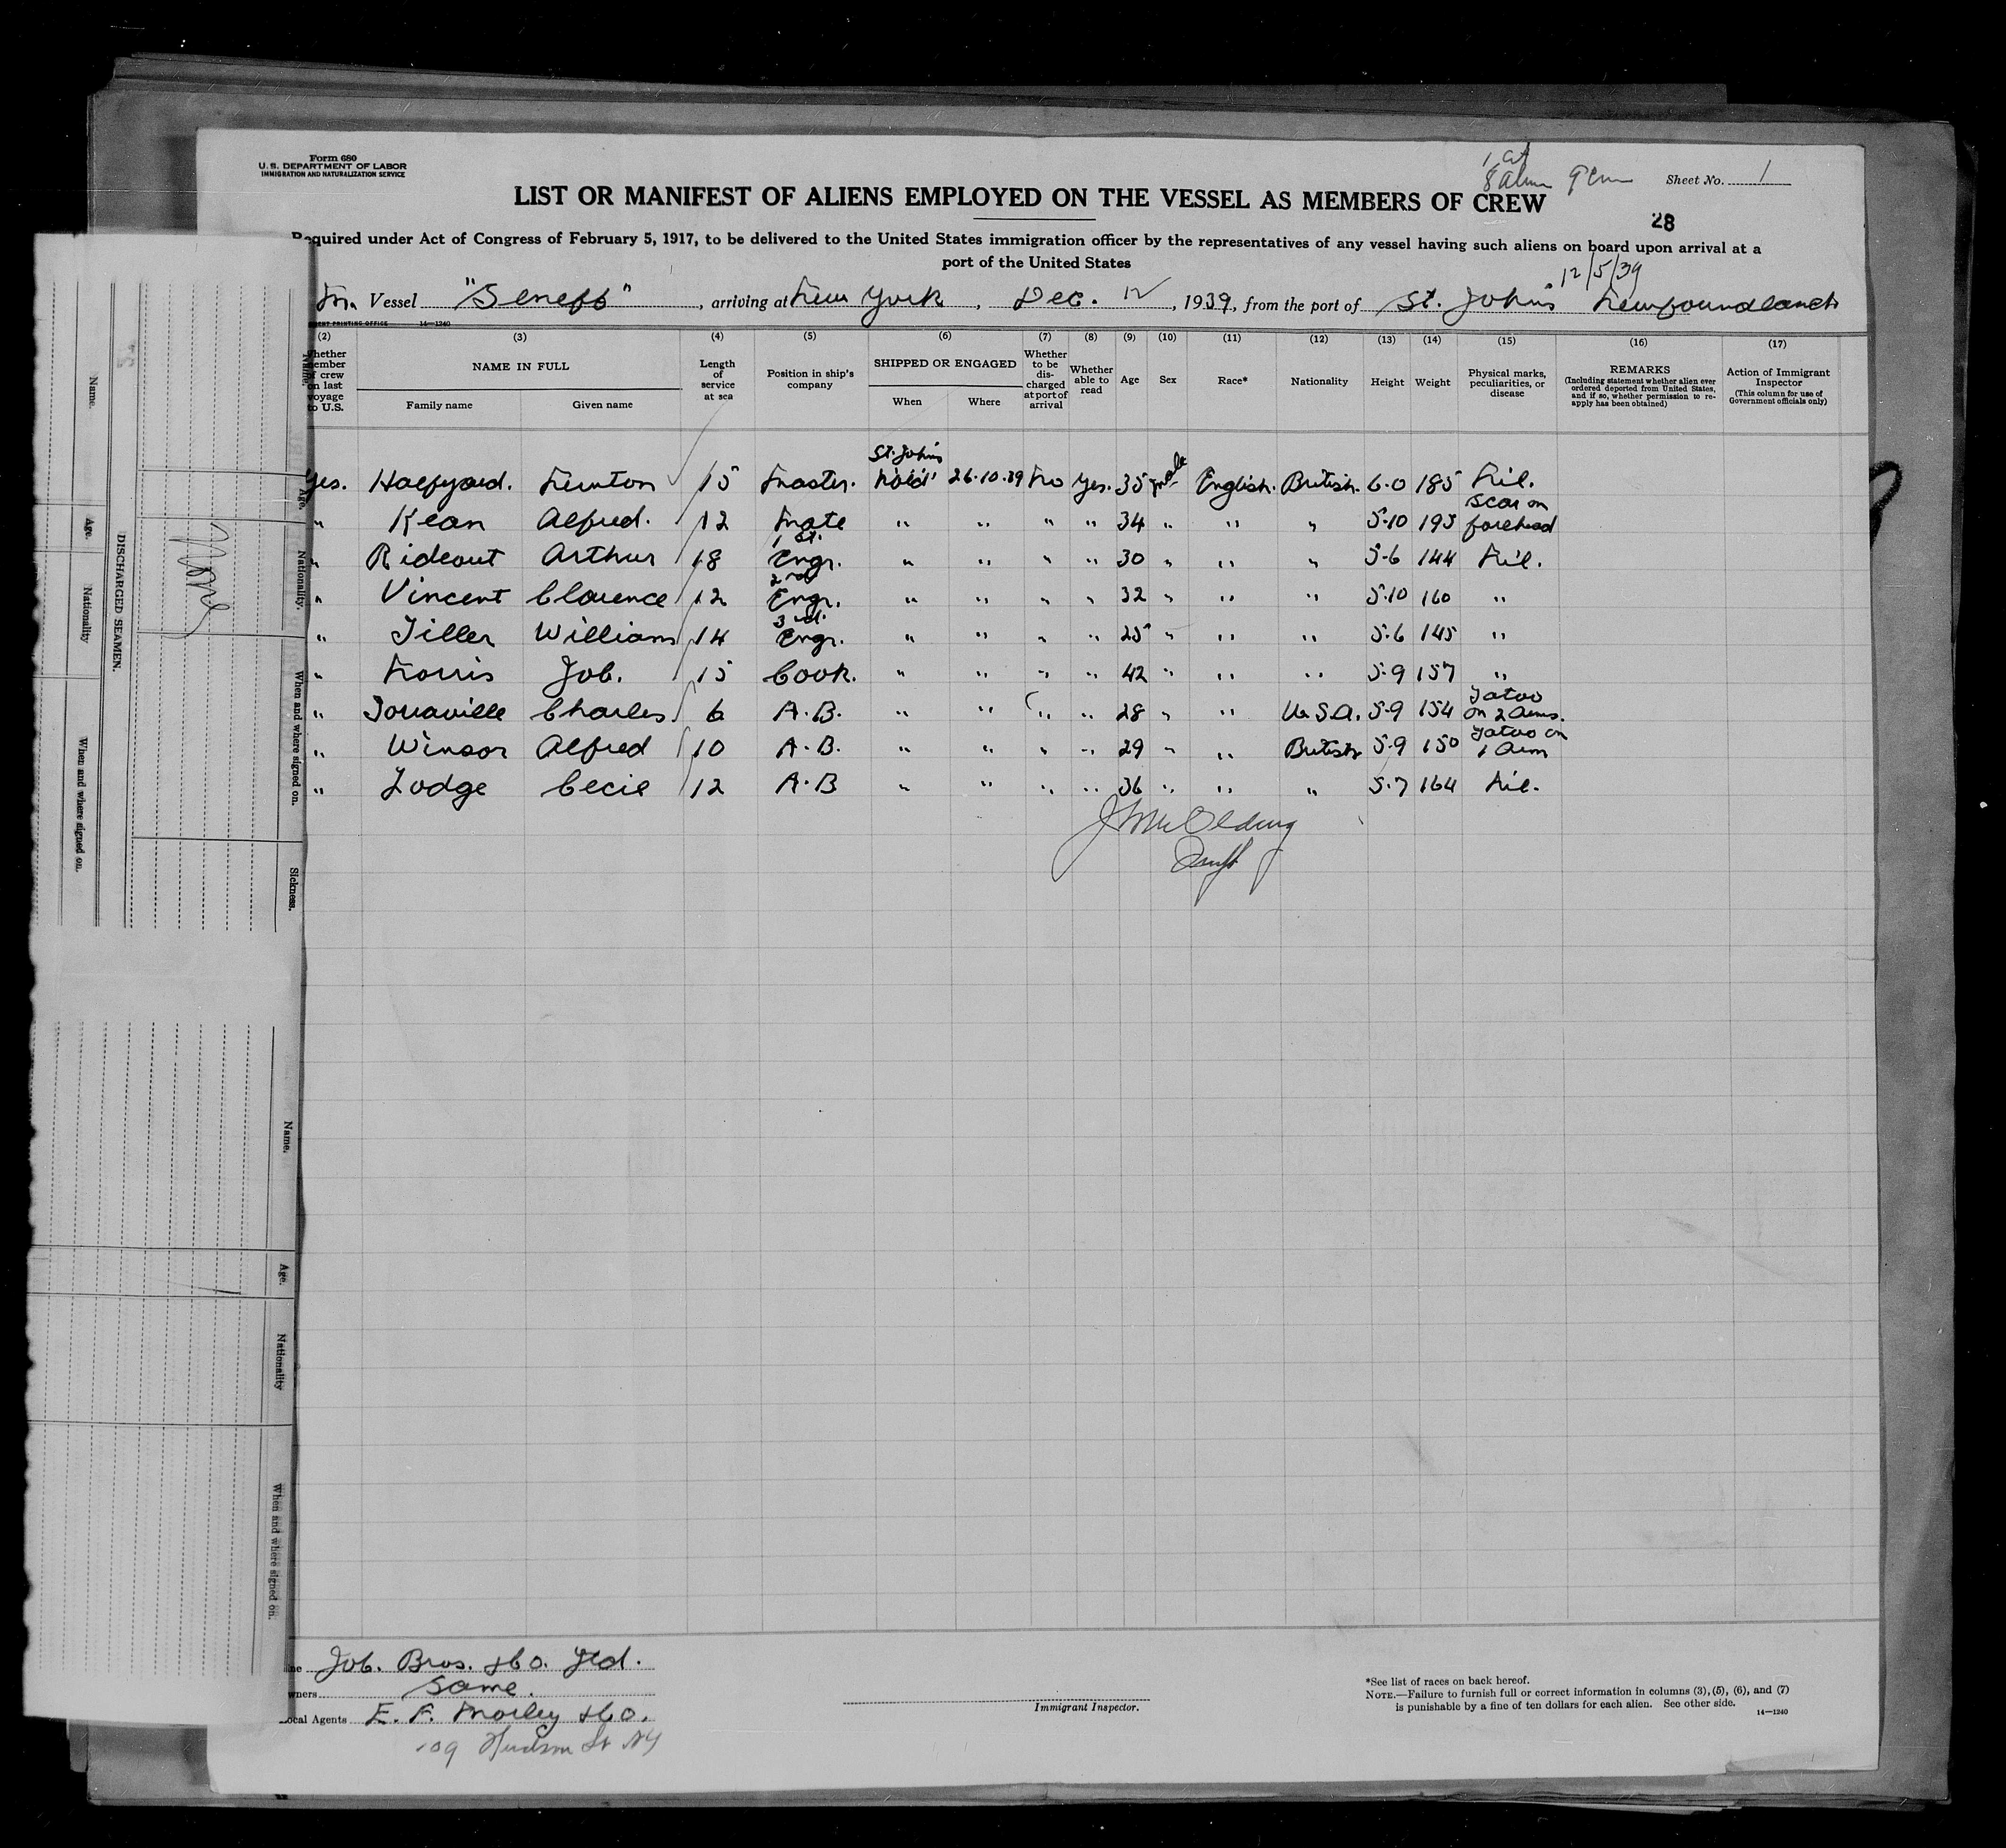 Form 680
U. S. DEPARTMENT OF LABOR
IMMIGRATION AND NATURALIZATION SERVICE
Sheet No. 1
LIST OR MANIFEST OF ALIENS EMPLOYED ON THE VESSEL AS MEMBERS OF CREW
28
Required under Act of Congress of February 5, 1917, to be delivered to the United States immigration officer by the representatives of any vessel having such aliens on board upon arrival at a
port of the United States
12/5/39
Vessel "Seneff", arriving at New York, Dec. 12, 1939, from the port of St. John's Newfoundland
14—1240
(2) (3) (4) (5) (6) (7) (8) (9) (10) (11) (12) (13) (14) (15) (16) (17)
NAME IN FULL
Family name Given name
Length of service at sea
Position in ship's company
SHIPPED OR ENGAGED
When Where
Whether to be discharged at port of arrival
Whether able to read
Age Sex Race* Nationality Height Weight
Physical marks, peculiarities, or disease
REMARKS
(Including statement whether alien ever ordered deported from United States, and if so, whether permission to reapply has been obtained)
Action of Immigrant Inspector
(This column for use of Government officials only)
St. John's
Yes. Halfyard. Newton 15 Master. Nfld 26.10.39 No Yes. 35 male English. British. 6.0 185 Nil.
" Kean Alfred. 12 Mate " " " " 34 " " " 5.10 195 Scar on forehead
" Rideout Arthur 18 1st. Engr. " " " " 30 " " " 5.6 144 Nil.
" Vincent Clarence 12 2nd Engr. " " " " 32 " " " 5.10 160 "
" Tiller William 14 3rd. Engr. " " " " 25 " " " 5.6 145 "
" Norris Job. 15 Cook. " " " " 42 " " " 5.9 157 "
" Charles 6 A.B. " " " " 28 " " U.S.A. 5.9 154 Tatoo on 2 arms.
" Winsor Alfred 10 A.B. " " " " 29 " " British 5.9 150 Tatoo on 1 arm
" Lodge Cecil 12 A.B " " " " 36 " " " 5.7 164 Nil.
Job. Bros. & Co. Ltd.
Same.
Local Agents E. F. Morley & Co.
109 Hudson St NY
Immigrant Inspector.
*See list of races on back hereof.
NOTE.—Failure to furnish full or correct information in columns (3), (5), (6), and (7)
is punishable by a fine of ten dollars for each alien. See other side.
14—1240
DISCHARGED SEAMEN.
Name.
Age.
Nationality
When and where signed on.
Age.
Nationality.
When and where signed on.
Sickness.
Name.
Age.
Nationality
When and where signed on.